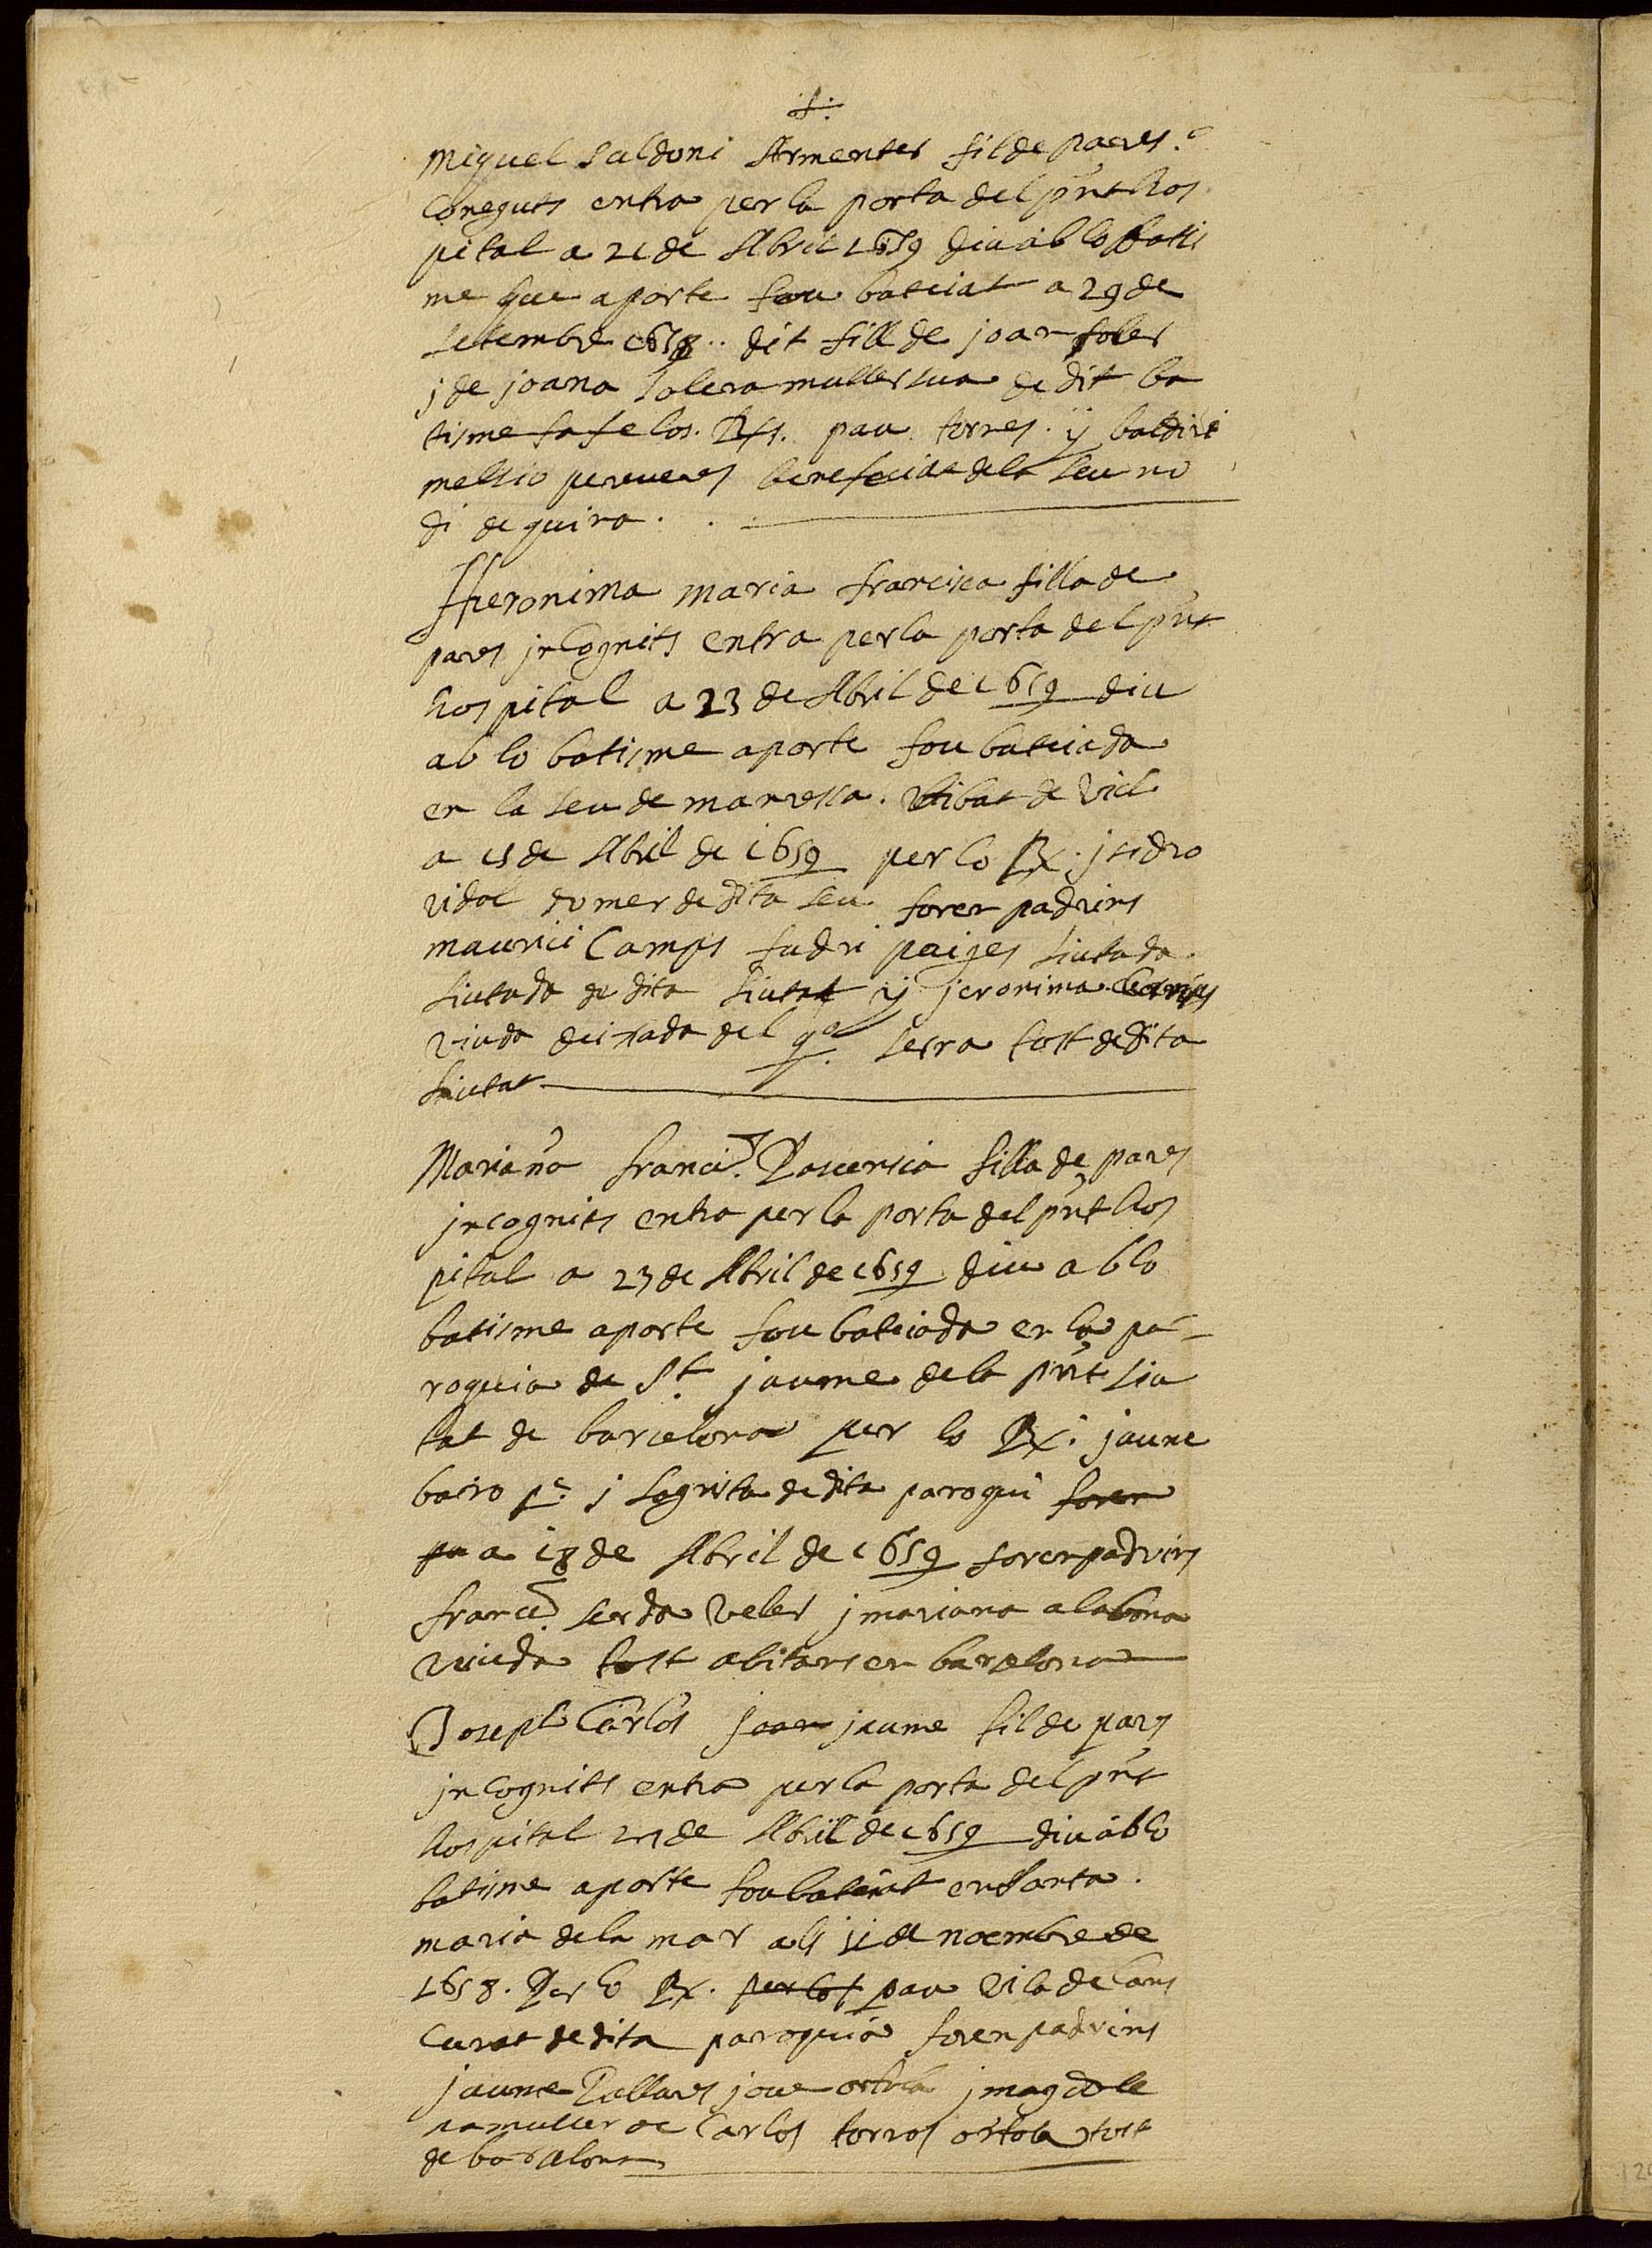 Miquel Saldoni Armenter fil de pares
Coneguts entra per la porta del pnt hos
pital a 21 de Abril 1659 diu ab lo batis
me que aporte fou bateiat a 29 de
setembre 1658 .. dit fill de joan soler
j de joana Solera muller sua de dit ba
tisme fa fe los. Rts. pau torres . y baldiri
melsio preveres benefeciats dela seu no
di de quina . . .
Hieronima maria francisca filla de
pares jncognits entra per la porta del pnt
hospital a 23 de Abril de 1659 diu
ab lo batisme aporte fou bateiada
en la seu de manresa . bisbat de Vich
a 15 de Abril de 1659 per lo Rt. jsidro
vidal domer de dita seu foren padrins
maurici Camps fadri paijes siutada
siutada de dita siutat y jeronima Camps
viuda deixada del qo. serra tost de dita
siutat
Mariana franca. Pascensia filla de pares
jncognits entra per la porta del pnt hos
pital a 23 de Abril de 1659 diu ab lo
batisme aporte fou bateiada en la pa-
roquia de St. jaume de la pnt siu
tat de barcelona per lo Rt. jaume
bairo pe. j sagrista de dita paroqui foren
pa a 18 de Abril de 1659 foren padrins
francco. serda veler j mariana alabona
viuda tost abitans en barcelona
Joseph Carlos joan jaume fil de pares
jncognits entra per la porta del pnt
hospital 23 de Abril de 1659 diu ab lo
batisme aporte fou bateiat en Santa .
maria de la mar als 11 de noembre de
1658. Per lo Rt. per los pau Viladecans
Curat de dita paroquia foren padrins
jaume Pallares jove ortola j magdale
na muller de Carlos torros ortola tost
de barselona